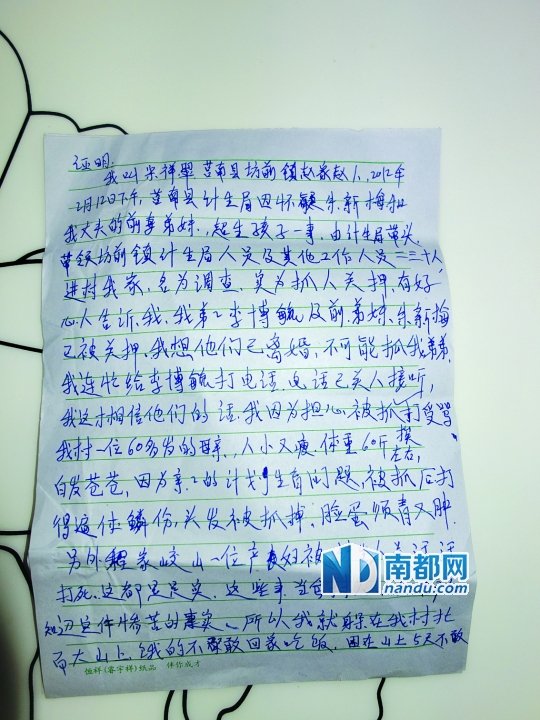 证明:
我叫 祥 莒南县坊前镇赵家 人、2012年
2月12日下午,莒南县计生局因怀疑朱新梅和
我丈夫的前妻弟妹、超生孩子一事、由计生局带头、
带领坊前镇计生局人员及其他工作人员二三十人,
进村我家,名为调查、实为抓人关押,有好
心人告诉我、我弟李博 及前弟妹、朱新梅
已被关押、我想他们已离婚,不可能抓我弟弟、
我连忙给李博 打电话,电话已关人接听,
我这才相信他们的话、我因为担心被抓打受骂
我村一位60多岁的母亲、人小又瘦、体重60斤
左右,
白发苍苍,因为亲 的计划生育问题,被抓后打
得遍体鳞份,头发被抓掉、脸蛋 青又肿.
另外 家 山一位产妇被
打死、这都是足实、这些事
件悽苦的事实、所以我就 在我村北
而大山上、饿的不敢回家吃饭、困在山上5天不敢
恒祥(睿宇祥)纸品 伴你成才
ND 南都网
nandu.com